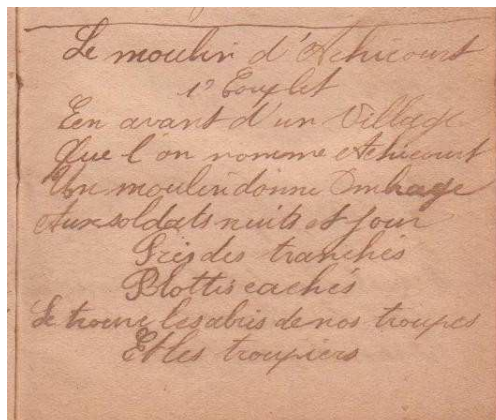 Le moulin d'Achicourt
1º Couplet
Een avant d'un Village
Que l'on nomme Achicourt
Un moulin donne Ombrage
Aux soldats nuits et jour
Près des tranchés
Blottis cachés
Se trouve les abris de nos troupes
Et les troupiers